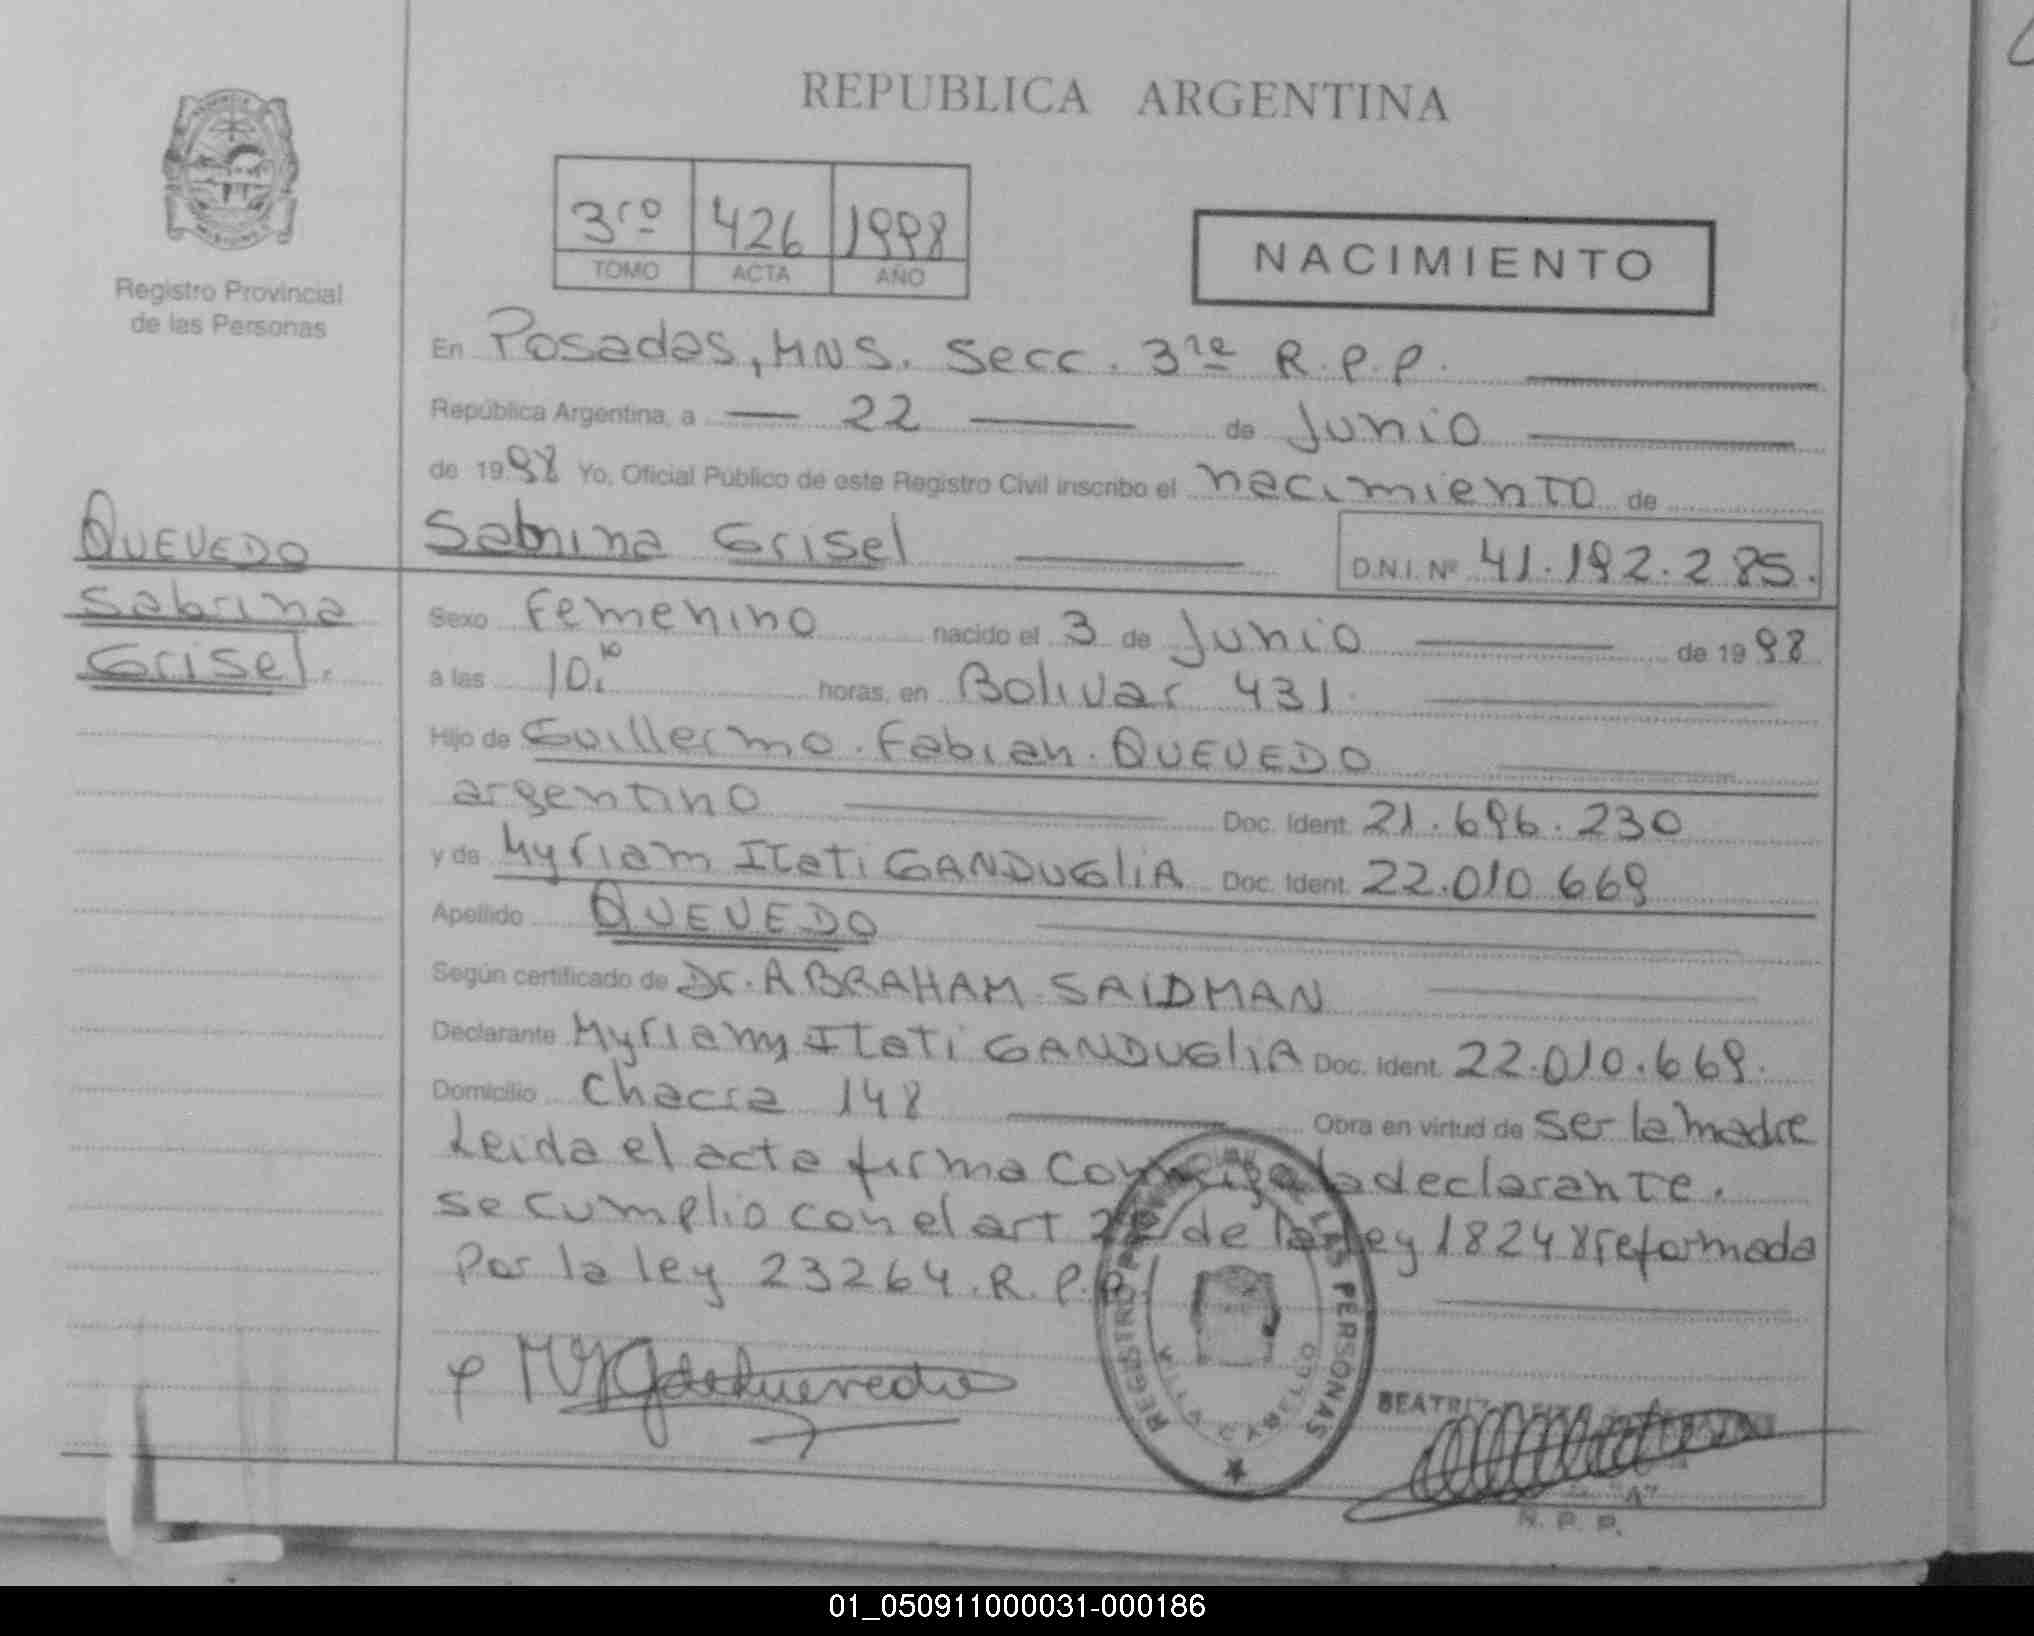 REPUBLICA ARGENTINA
3ro 426 1998
TOMO ACTA AÑO
NACIMIENTO
Registro Provincial
de las Personas
En Posadas, MNS. Secc. 3ra R.P.P.
República Argentina, a 22 de Junio
de 1998 Yo, Oficial Público de este Registro Civil inscribo el nacimiento de
QUEVEDO
Sabrina
Grisel.
Sabrina Grisel D.N.I. Nº 41.192.285.
Sexo Femenino nacido el 3 de Junio de 1998
a las 10.10 horas, en Bolivar 431.
Hijo de Guillermo Fabian QUEVEDO
argentino Doc. Ident. 21.696.230
y de Myriam Itati GANDUGLIA Doc. Ident. 22.010.669
Apellido QUEVEDO
Según certificado de Dr. ABRAHAM SAIDMAN
Declarante Myriam Itati GANDUGLIA Doc. Ident. 22.010.669.
Domicilio Chacra 148 Obra en virtud de ser la madre
Leida el acta firma conmigo la declarante.
se cumplio con el art de la ley 18248 reformada
Por la ley 23264. R.P.P.
REGISTRO PROVINCIAL DE LAS PERSONAS
VILLA CABELLO
BEATRIZ
"A"
R. P. P.
01_050911000031-000186